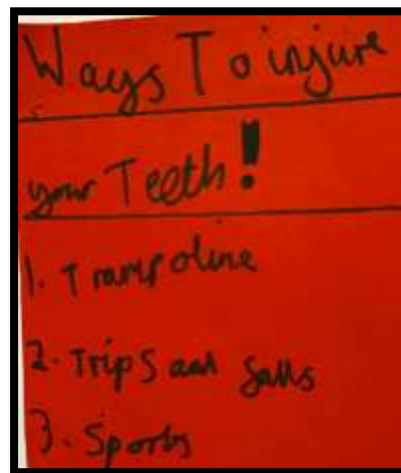 Ways To injure
your Teeth!
1. Trampoline
2. Trips and falls
3. Sports